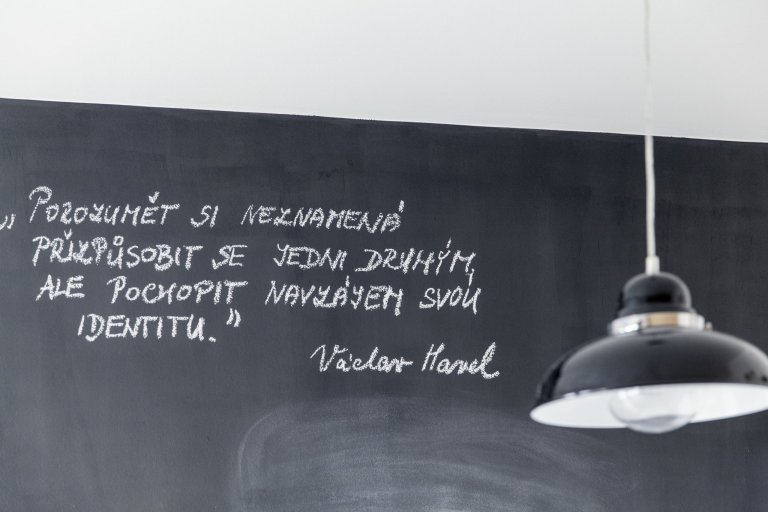 „Porozumět si neznamená
přizpůsobit se jedni druhým,
ale pochopit navzájem svou
identitu.”
Václav Havel